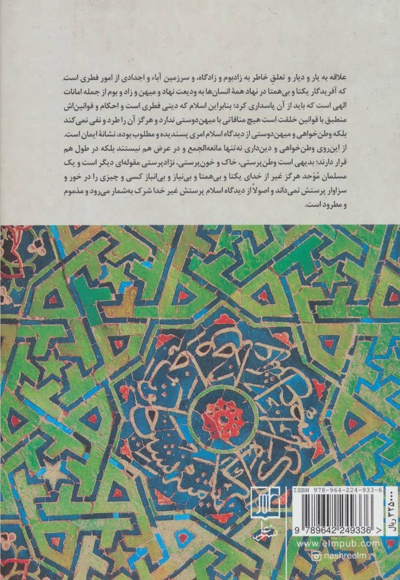 علاقه به یار و دیار و تعلق خاطر به زادبوم و زادگاه، و سرزمین آباء و اجدادی از امور فطری است
که آفریدگار یکتا و بی‌همتا در نهاد همهٔ انسان‌ها به ودیعت نهاد و میهن و زاد و بوم از جمله امانات
الهی است که باید از آن پاسداری کرد؛ بنابراین اسلام که دینی فطری است و احکام و قوانین‌اش
منطبق با قوانین خلقت است هیچ منافاتی با میهن‌دوستی ندارد و هرگز آن را طرد و نفی نمی‌کند
بلکه وطن‌خواهی و میهن‌دوستی از دیدگاه اسلام امری پسندیده و مطلوب بوده، نشانهٔ ایمان است.
از این‌روی وطن‌خواهی و دین‌داری نه‌تنها مانعه‌الجمع و در عرض هم نیستند بلکه در طول هم
قرار دارند؛ بدیهی است وطن‌پرستی، خاک و خون‌پرستی، نژادپرستی مقوله‌ای دیگر است و یک
مسلمان مُوَحد هرگز غیر از خدای یکتا و بی‌همتا و بی‌نیاز و بی‌انباز کسی و چیزی را در خور و
سزاوار پرستش نمی‌داند و اصولاً از دیدگاه اسلام پرستش غیر خدا شرک به‌شمار می‌رود و مذموم
و مطرود است.
ISBN 978-964-224-933-6
9 789642 249336
۲۲۵۰۰۰ ریال
www.elmpub.com
nashreelm